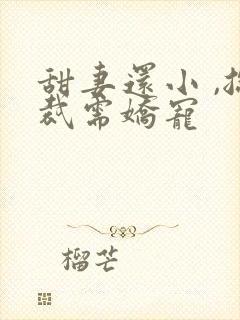 甜妻還小,
裁需嬌寵
榴芒